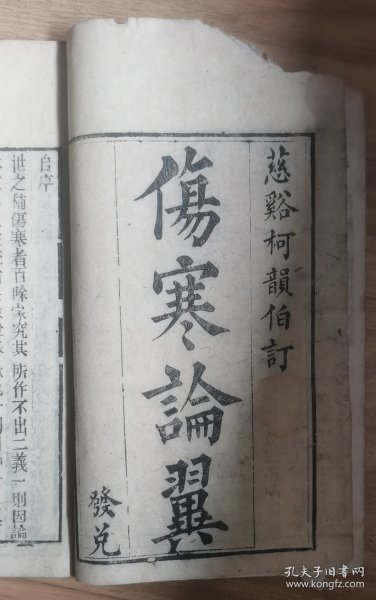 慈谿柯韻伯訂
傷寒論翼
發兌
自序
世之補傷寒者百餘家究其所作不出二義一則因論
孔夫子旧书网
www.kongfz.com